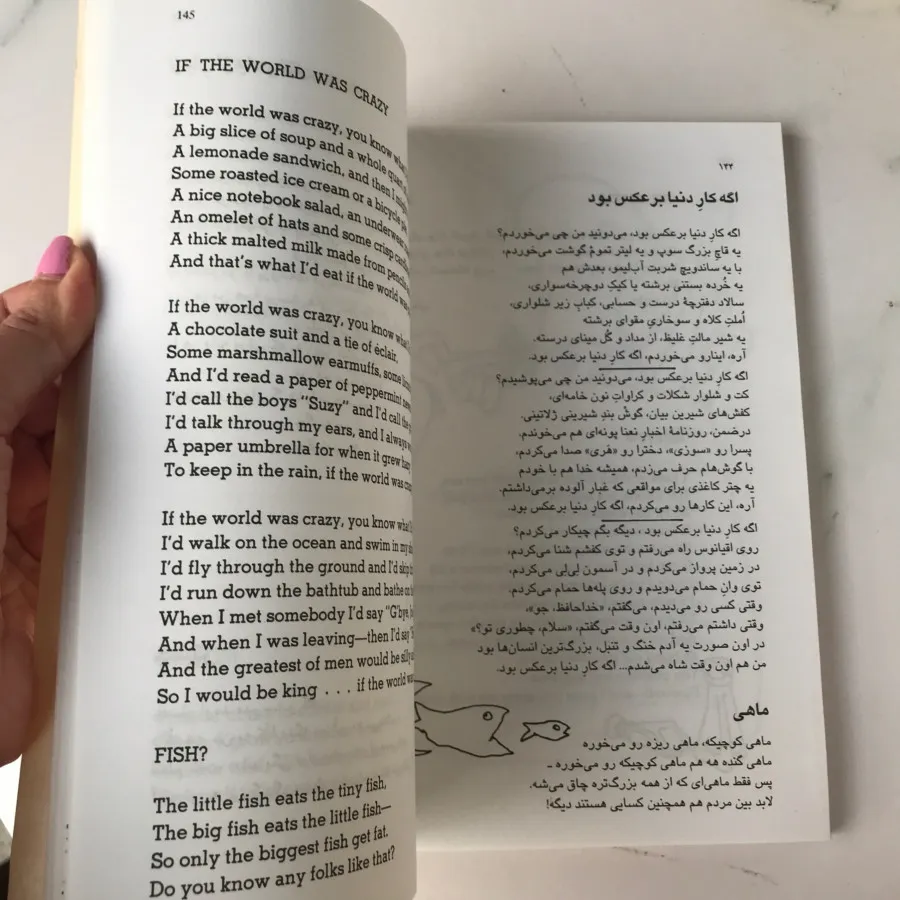 145
IF THE WORLD WAS CRAZY
If the world was crazy, you know
A big slice of soup and a whole quart
A lemonade sandwich, and then I might
Some roasted ice cream or a bicycle
A nice notebook salad, an underwear
An omelet of hats and some crisp
A thick malted milk made from pencils
And that's what I'd eat if the world was
If the world was crazy, you know
A chocolate suit and a tie of éclair,
Some marshmallow earmuffs, some
And I'd read a paper of peppermint
I'd call the boys "Suzy" and I'd call the
I'd talk through my ears, and I always
A paper umbrella for when it grew
To keep in the rain, if the world was
If the world was crazy, you know
I'd walk on the ocean and swim in my
I'd fly through the ground and I'd skip
I'd run down the bathtub and bathe on
When I met somebody I'd say "G'bye,
And when I was leaving—then I'd say
And the greatest of men would be silly
So I would be king . . . if the world
FISH?
The little fish eats the tiny fish,
The big fish eats the little fish—
So only the biggest fish get fat.
Do you know any folks like that?
۱۴۴
اگه کارِ دنیا برعکس بود
اگه کارِ دنیا برعکس بود، می‌دونید من چی می‌خوردم؟
یه قاچِ بزرگ سوپ و یه لیتر تمومْ گوشت می‌خوردم،
با یه ساندویچ شربت آب‌لیمو، بعدش هم
یه خُرده بستنی برشته یا کیکِ دوچرخه‌سواری،
سالاد دفترچهٔ درست و حسابی، کبابِ زیر شلواری،
اُملتِ کلاه و سوخاریِ مقوای برشته
یه شیر مالتِ غلیظ، از مداد و گُل مینای درسته.
آره، اینارو می‌خوردم، اگه کارِ دنیا برعکس بود.
اگه کارِ دنیا برعکس بود، می‌دونید من چی می‌پوشیدم؟
کت و شلوار شکلات و کراواتِ نون خامه‌ای،
کفش‌های شیرین بیان، گوشْ بندِ شیرینی ژلاتینی.
درضمن، روزنامهٔ اخبارِ نعنا پونه‌ای هم می‌خوندم.
پسرا رو «سوزی»، دخترا رو «فری» صدا می‌کردم،
با گوش‌هام حرف می‌زدم، همیشه خدا هم با خودم
یه چتر کاغذی برای مواقعی که غبار آلوده برمی‌داشتم.
آره، این کارها رو می‌کردم، اگه کارِ دنیا برعکس بود.
اگه کارِ دنیا برعکس بود ، دیگه بگم چیکار می‌کردم؟
روی اقیانوس راه می‌رفتم و توی کفشم شنا می‌کردم،
در زمین پرواز می‌کردم و در آسمون لِی‌لِی می‌کردم،
توی وانِ حمام می‌دویدم و روی پله‌ها حمام می‌کردم،
وقتی کسی رو می‌دیدم، می‌گفتم، «خداحافظ، جو»،
وقتی داشتم می‌رفتم، اون وقت می‌گفتم، «سلام، چطوری تو؟»
در اون صورت یه آدم خنگ و تنبل، بزرگ‌ترین انسان‌ها بود
من هم اون وقت شاه می‌شدم... اگه کارِ دنیا برعکس بود.
ماهی
ماهی کوچیکه، ماهی ریزه رو می‌خوره
ماهی گنده هه هم ماهی کوچیکه رو می‌خوره ـ
پس فقط ماهی‌ای که از همه بزرگ‌تره چاق می‌شه.
لابد بین مردم هم همچنین کسایی هستند دیگه!